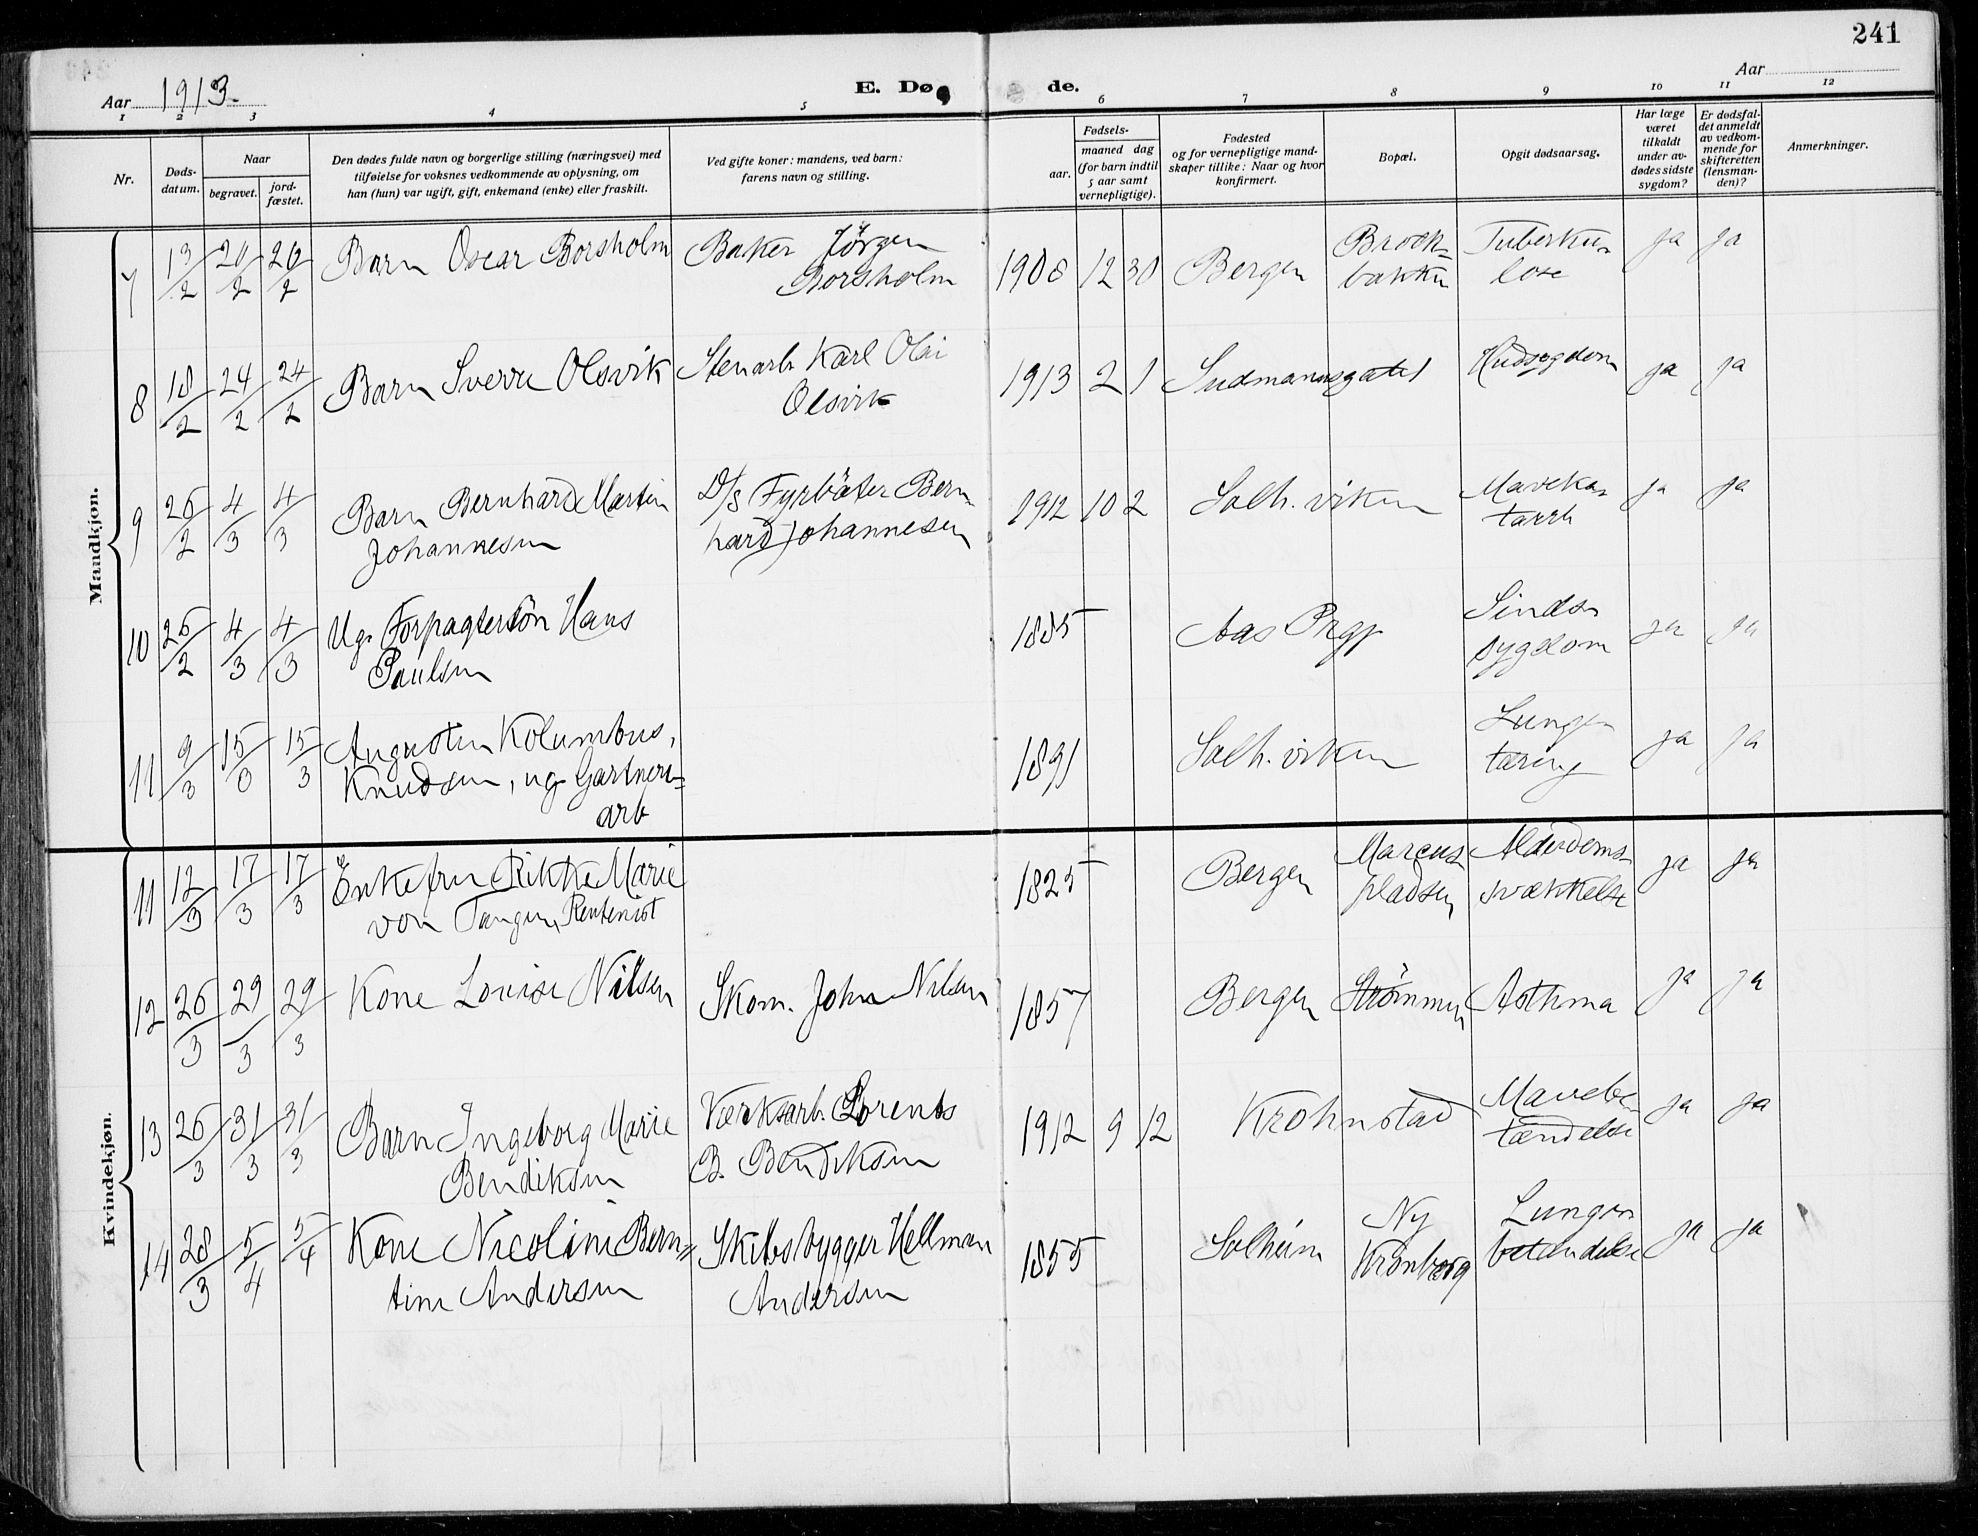 241
Aar 1913.
E. Dø de.
Aar
1 2 3 4 5 6 7 8 9 10 11 12
Nr.
Døds-
datum.
Naar
begravet.
jord-
fæstet.
Den dødes fulde navn og borgerlige stilling (næringsvei) med
tilføielse for voksnes vedkommende av oplysning, om
han (hun) var ugift, gift, enkemand (enke) eller fraskilt.
Ved gifte koner: mandens, ved barn:
farens navn og stilling.
Fødsels-
aar.
maaned dag
(for barn indtil
5 aar samt
vernepligtige).
Fødested
og for vernepligtige mand-
skaper tillike: Naar og hvor
konfirmert.
Bopæl.
Opgit dødsaarsag.
Har læge
været
tilkaldt
under av-
dødes sidste
sygdom?
Er dødsfal-
det anmeldt
av vedkom-
mende for
skifteretten
(lensman-
den)?
Anmerkninger.
Mandkjøn.
7 13/2 20/2 20/2 Barn Oscar Borsholm Baker Jørgen 1908 12 30 Bergen Bræk- Tuberku- ja ja
Borsholm bakken lose
8 18/2 24/2 24/2 Barn Sverre Olsvik Stenarb. Karl Olai 1913 2 1 Sudmannsgate 1 Hudsygdom ja ja
Olsvik
9 26/2 4/3 4/3 Barn Bernhard Martin D/S Fyrbøter Bern- 1912 10 2 Solh. viken Maveka- ja ja
Johannesen hard Johannesen tarrh
10 26/2 4/3 4/3 Ug. Forpagtersøn Hans 1885 Aas Sinds- ja ja
Paulsen sygdom
11 9/3 15/3 15/3 Augustin Kolumbus, 1891 Solh. viken Lunge- ja ja
Knudsen, ug. Gartneri- tæring
arb
Kvindekjøn.
11 12/3 17/3 17/3 Enkefru Rikke Marie 1825 Bergen Marcus- Alderdoms- ja ja
von Tangen, Rentenist pladsen svækkelse
12 26/3 29/3 29/3 Kone Louise Nilsen Skom. John Nilsen 1857 Bergen Strømmen Asthma ja ja
13 26/3 31/3 31/3 Barn Ingeborg Marie Værksarb. Lorents 1912 9 12 Krohnstad Mavebe- ja ja
Bendiksen B. Bendiksen tændelse
14 28/3 5/4 5/4 Kone Nicoline Bern- Skibsbygger Hellman 1855 Solheim Ny Lunge- ja ja
tine Andersen Andersen Kronborg betændelse